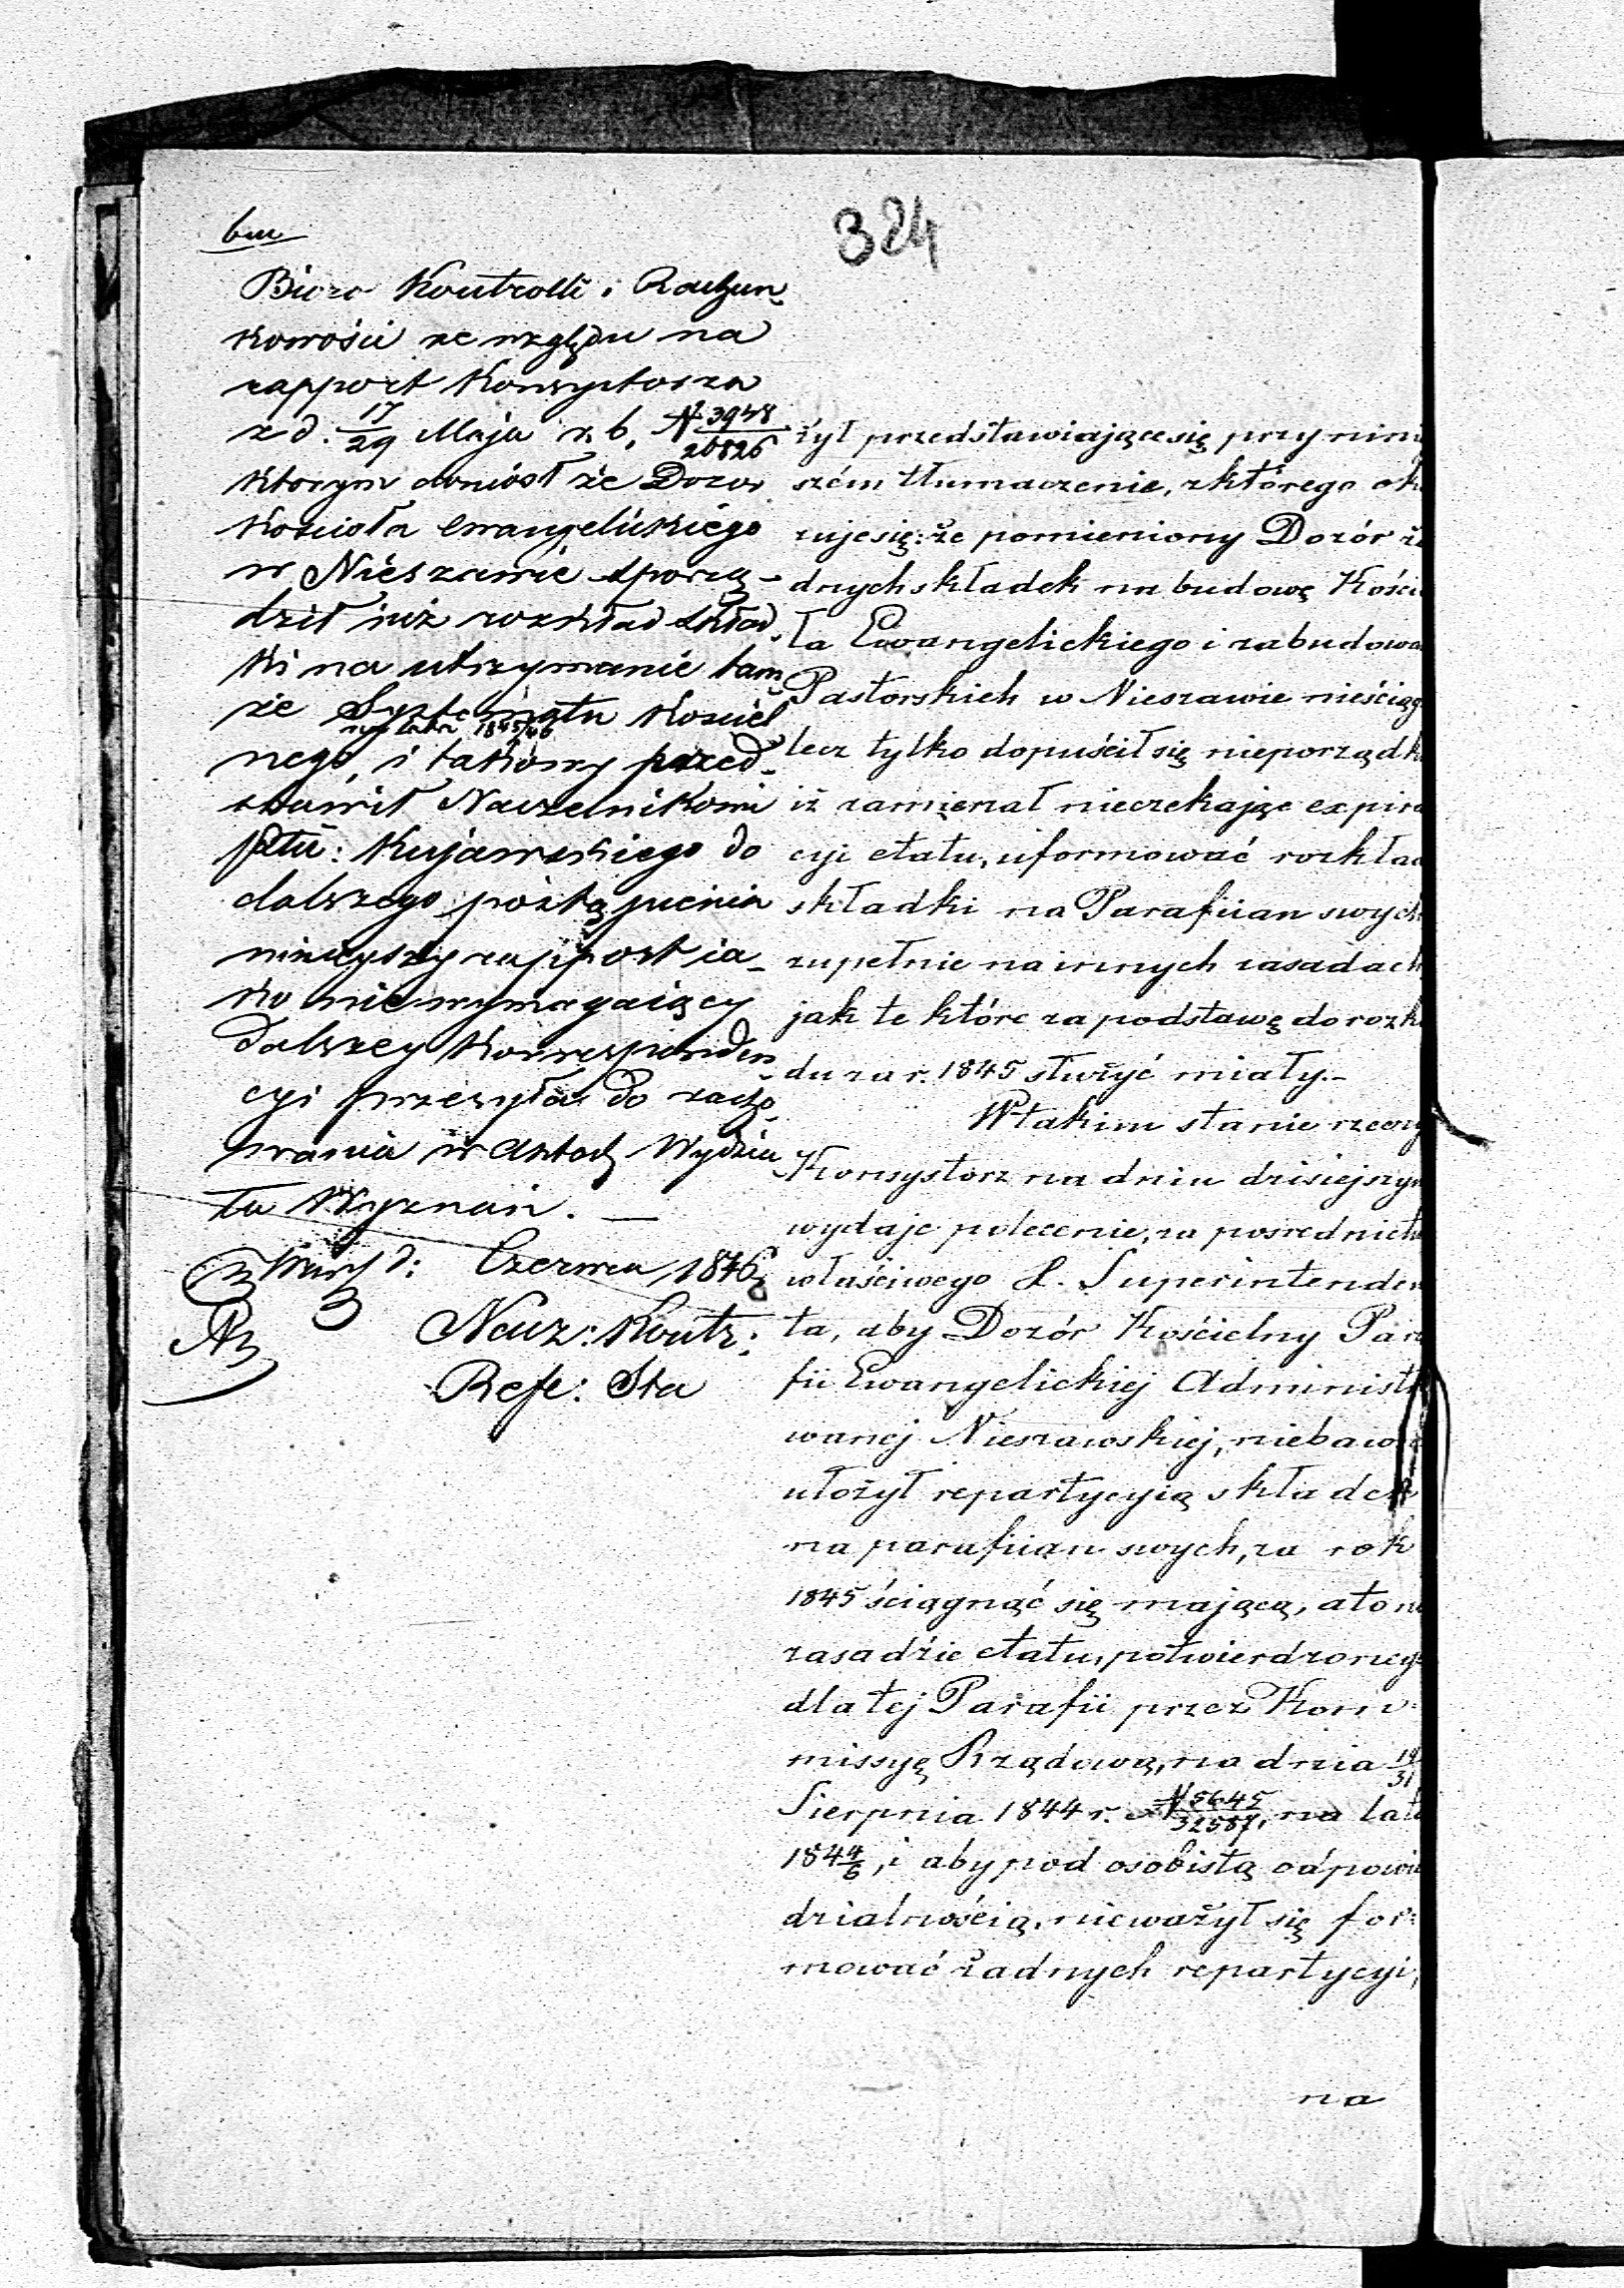 324
bm
Biuro Kontrolli i Rachun-
kowości ze względu na
rapport Konsystorza
z d. 17/29 Maja r. b. N 3948/26826
którym doniósł że Dozór
Kościoła Ewangelickiego
w Nieszawie sporzą-
dził już rozkład skład-
ki na utrzymanie tam-
że Systematu Kościel
na lata 1845/46
nego, i takowy przed-
stawił Naczelnikowi
Ptu: Kujawskiego do
dalszego postąpienia
ninieyszy rapport ia-
ko niewymagaiący
dalszey Korrespunden-
cyi przesyła do zacho-
wania w Aktach Wydzia
łu Wyznań. —
Warsz d: Czerwca 1846
Nacz: Kontr:
Refe: Sta
żył przedstawiające się przy nini
szém tłumaczenie, z którego oka
zuje się: że pomieniony Dozór ża
dnych składek na budowę Kości
ła Ewangelickiego i zabudowa
Pastorskich w Nieszawie nieściąg
lecz tylko dopuścił się nieporządku
iż zamierzał nieczekając expira
cyi etatu, uformować rozkład
składki na Parafiian swych
zupełnie na innych zasadach
jak te które za podstawę do rozk
du za r. 1845 służyć miały.–
W takim stanie rzeczy
Konsystorz na dniu dzisiejszym
wydaje polecenie, za pośrednictw
właściwego S. Superintenden
ta, aby Dozór Kościelny Para
fii Ewangelickiej Administr
wanej Nieszawskiej, niebawe
ułożył repartycyią składek
na parafiian swych, za rok
1845 ściągnąć się mającą, a to na
zasadzie etatu, potwierdzonego
dla tej Parafii przez Kom
missyę Rządową, na dnia 19/31
Sierpnia 1844 r. N 5645/32587, na lata
184 4/6, i aby pod osobistą odpowie
dzialnością, nieważył się for:
mować żadnych repartycyi,
na